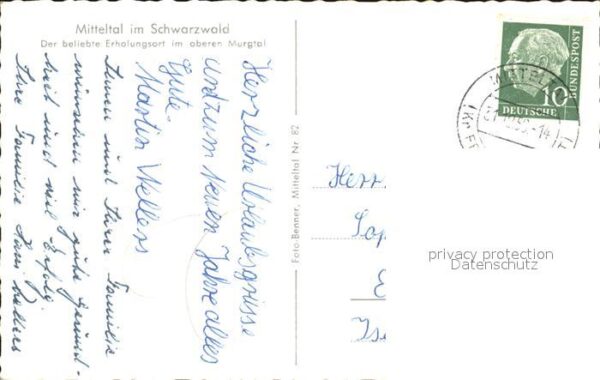 Mitteltal im Schwarzwald
Der beliebte Erholungsort im oberen Murgtal
Herzliche Urlaubsgrüsse
und zum neuen Jahre alles
Gute.
Martin Wellers
Ihnen und Ihrer Familie
wünschen wir gute Gesund-
heit und viel Erfolg.
Ihre Familie
Foto-Benner, Mitteltal Nr. 82
DEUTSCHE
BUNDESPOST
10
Herr
privacy protection
Datenschutz